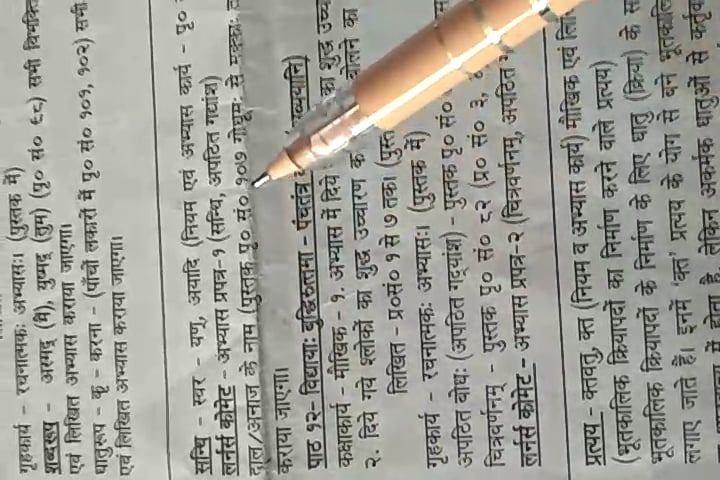 गृहकार्य - रचनात्मक: अभ्यास:। (पुस्तक में)
शब्दरूप - अस्मद् (मै), युष्मद् (तुम) (पृ० सं० ९८) सभी विभक्ति
एवं लिखित अभ्यास कराया जाएगा।
धातुरूप - कृ - करना - (पाँचों लकारों में पृ० सं० १०१, १०२) सभी
एवं लिखित अभ्यास कराया जाएगा।
सन्धि - स्वर - यण्, अयादि (नियम एवं अभ्यास कार्य - पृ०
लर्नर्स कोमेट - अभ्यास प्रपत्र-१ (सन्धि, अपठित गद्यांश)
दाल/अनाज के नाम (पुस्तक पृ० सं० १०७ गोधूम: से
कराया जाएगा।
पाठ १२- विद्याया: बुद्धिरुत्तमा - पंचतंत्र
कक्षाकार्य - मौखिक - १. अभ्यास में दिये का शुद्ध उच्चा
२. दिये गये श्लोकों का शुद्ध उच्चारण बोलने का
लिखित - प्र०सं० १ से ७ तक। (पुस्त
गृहकार्य - रचनात्मक: अभ्यास:। (पुस्तक में)
अपठित बोध: (अपठित गद्यांश) - पुस्तक पृ० सं०
चित्रवर्णनम् - पुस्तक पृ० सं० ८२ (प्र० सं० ३,
लर्नर्स कोमेट - अभ्यास प्रपत्र-२ (चित्रवर्णनम्, अपठित
प्रत्यय - क्तवतु, क्त (नियम व अभ्यास कार्य) मौखिक एवं लि
(भूतकालिक क्रियापदों का निर्माण करने वाले प्रत्यय)
भूतकालिक क्रियापदों के निर्माण के लिए धातु (क्रिया) के स
लगाए जाते हैं। इनमें 'क्त' प्रत्यय के योग से बने भूतकालि
में होता है, लेकिन अकर्मक धातुओं से कर्तृवा